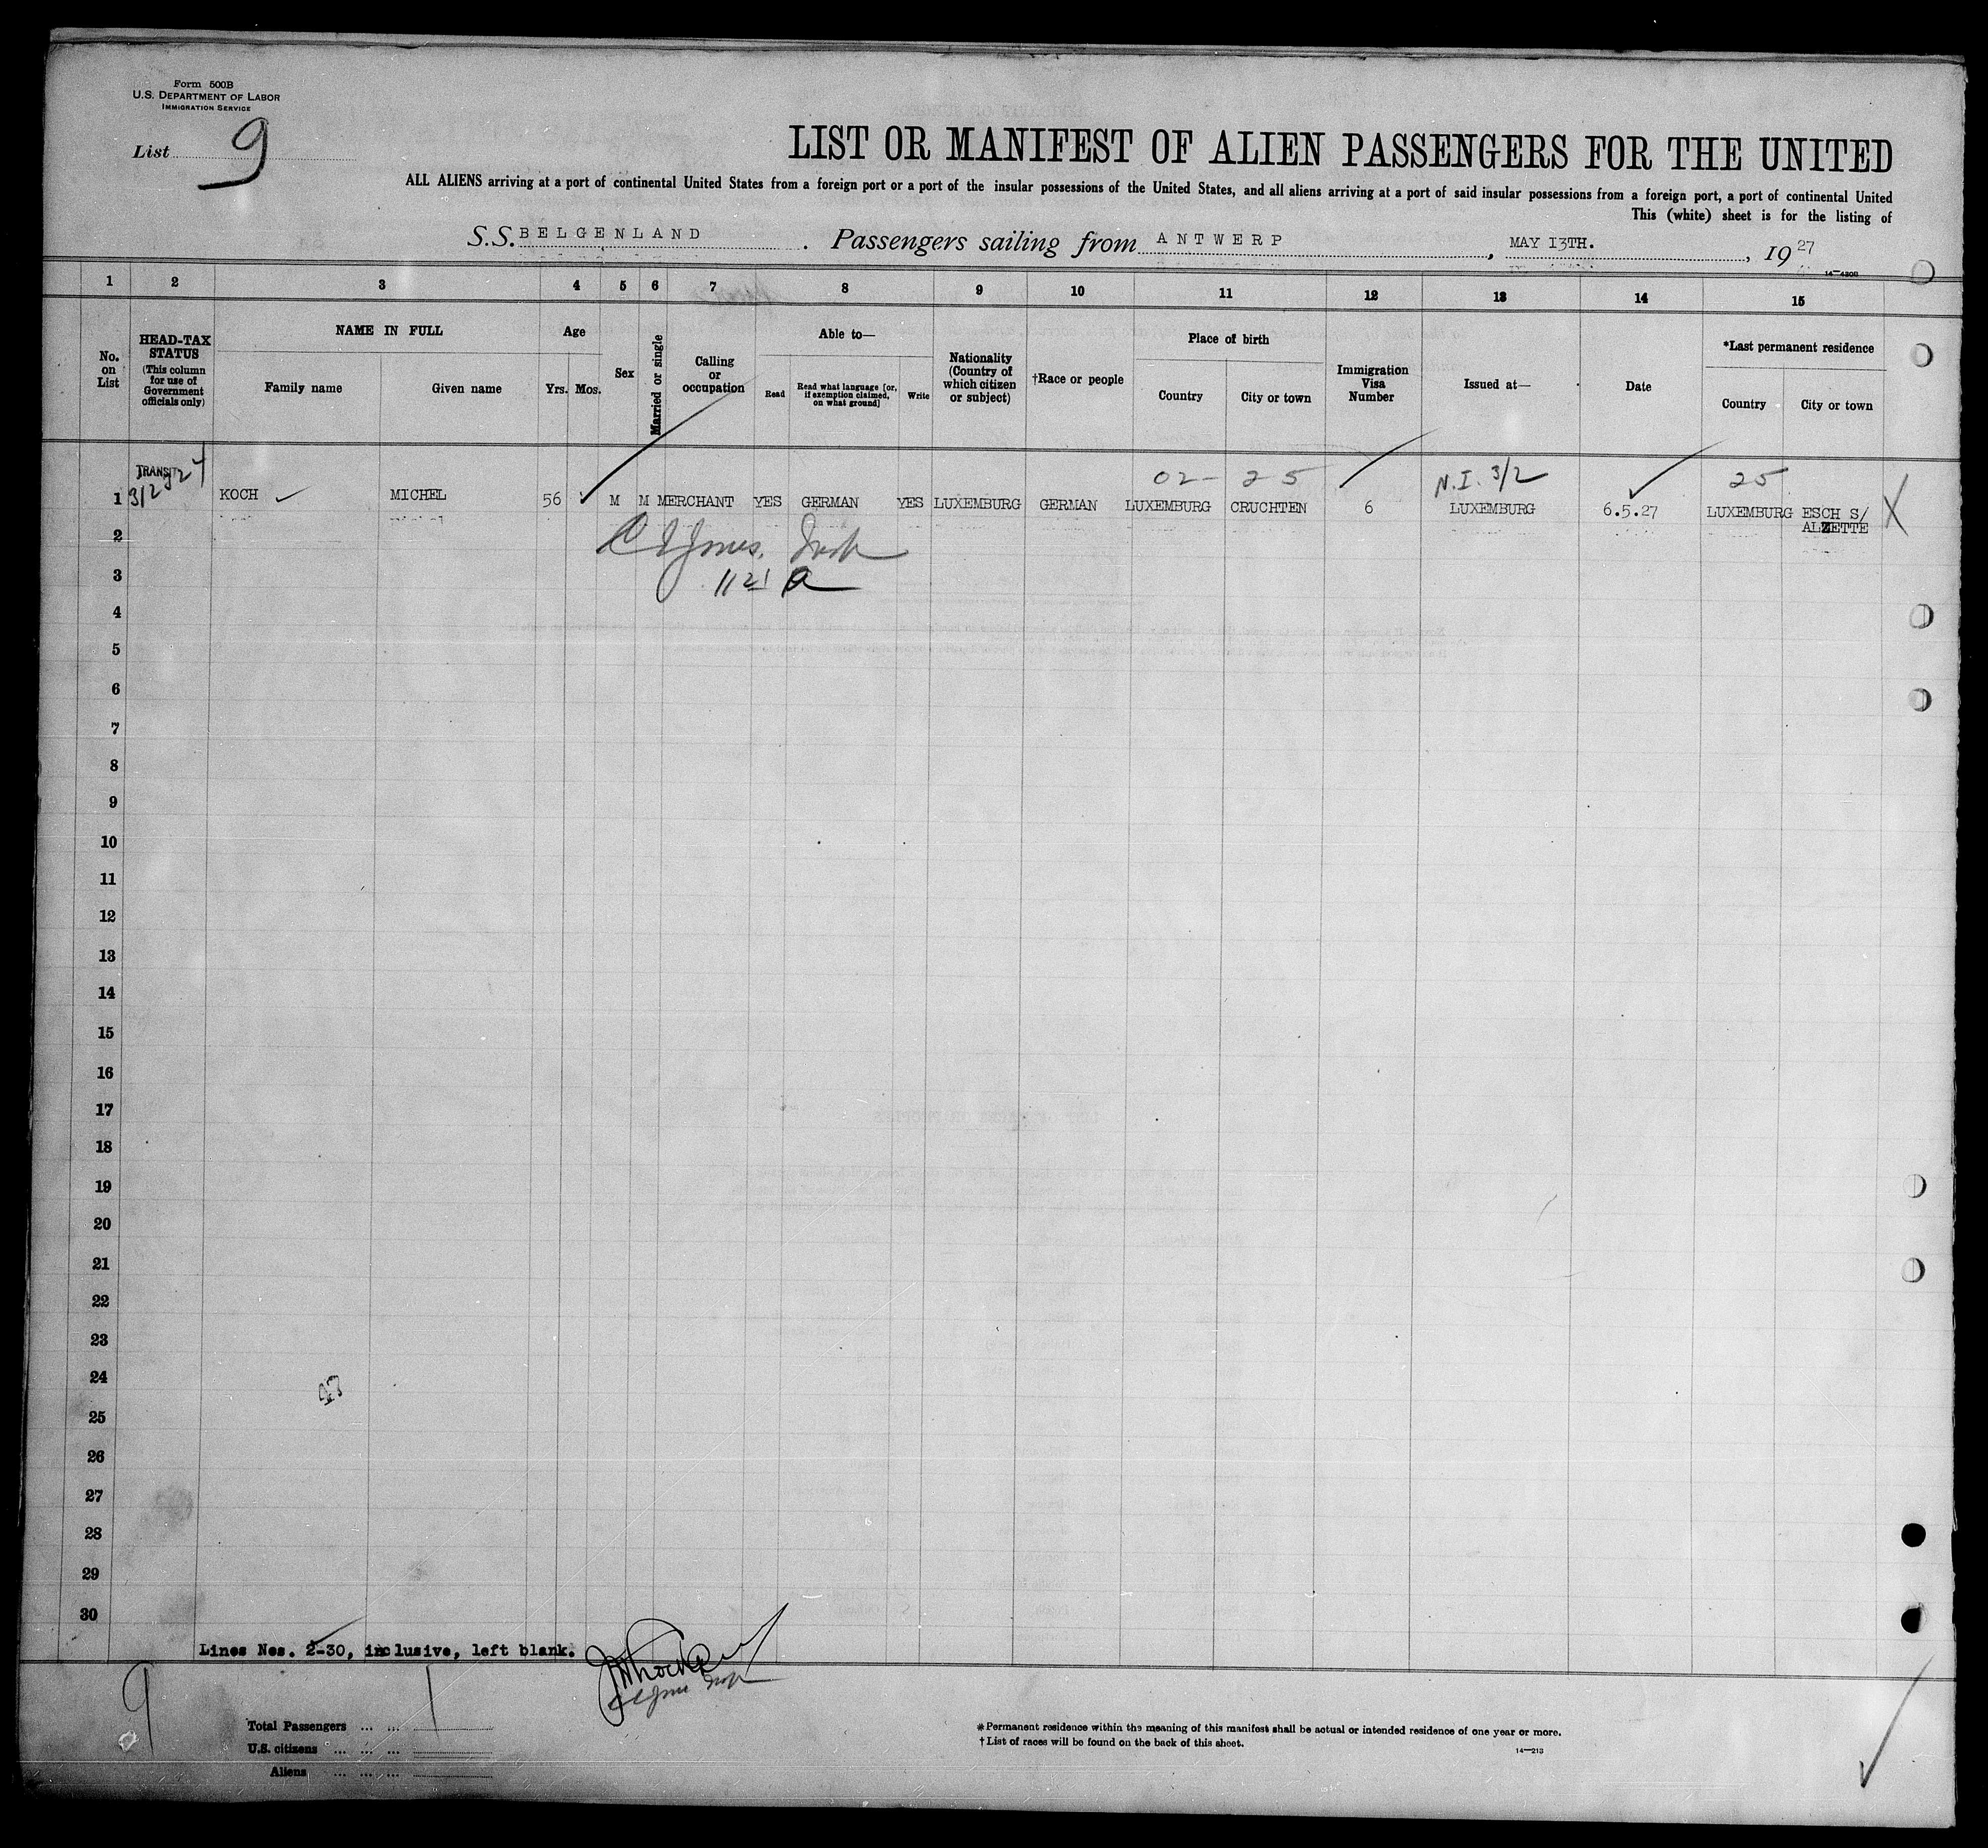 Form 500B
U.S. DEPARTMENT OF LABOR
IMMIGRATION SERVICE
List 9
LIST OR MANIFEST OF ALIEN PASSENGERS FOR THE UNITED
ALL ALIENS arriving at a port of continental United States from a foreign port or a port of the insular possessions of the United States, and all aliens arriving at a port of said insular possessions from a foreign port, a port of continental United
This (white) sheet is for the listing of
S.S. BELGENLAND . Passengers sailing from ANTWERP, MAY 13TH., 1927
14—4308
1 2 3 4 5 6 7 8 9 10 11 12 13 14 15
No. on List
HEAD-TAX STATUS (This column for use of Government officials only)
NAME IN FULL
Family name Given name
Age
Yrs. Mos.
Sex
Married or single
Calling or occupation
Able to—
Read Read what language [or, if exemption claimed, on what ground] Write
Nationality (Country of which citizen or subject)
†Race or people
Place of birth
Country City or town
Immigration Visa Number
Issued at—
Date
*Last permanent residence
Country City or town
TRANSIT 02- 25 N.I. 3/2 25
1 KOCH MICHEL 56 M M MERCHANT YES GERMAN YES LUXEMBURG GERMAN LUXEMBURG CRUCHTEN 6 LUXEMBURG 6.5.27 LUXEMBURG ESCH S/
ALZETTE X
2
3
4
5
6
7
8
9
10
11
12
13
14
15
16
17
18
19
20
21
22
23
24
25
26
27
28
29
30
Lines Nos. 2-30, inclusive, left blank.
9
Total Passengers ... ... 1
U.S. citizens ... ... ...
Aliens ... ... ...
*Permanent residence within the meaning of this manifest shall be actual or intended residence of one year or more.
†List of races will be found on the back of this sheet.
14—213